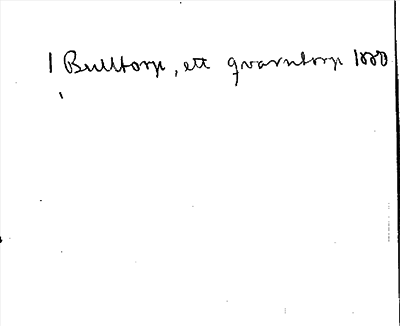 | Bulltorp, ett qvarntorp 1880